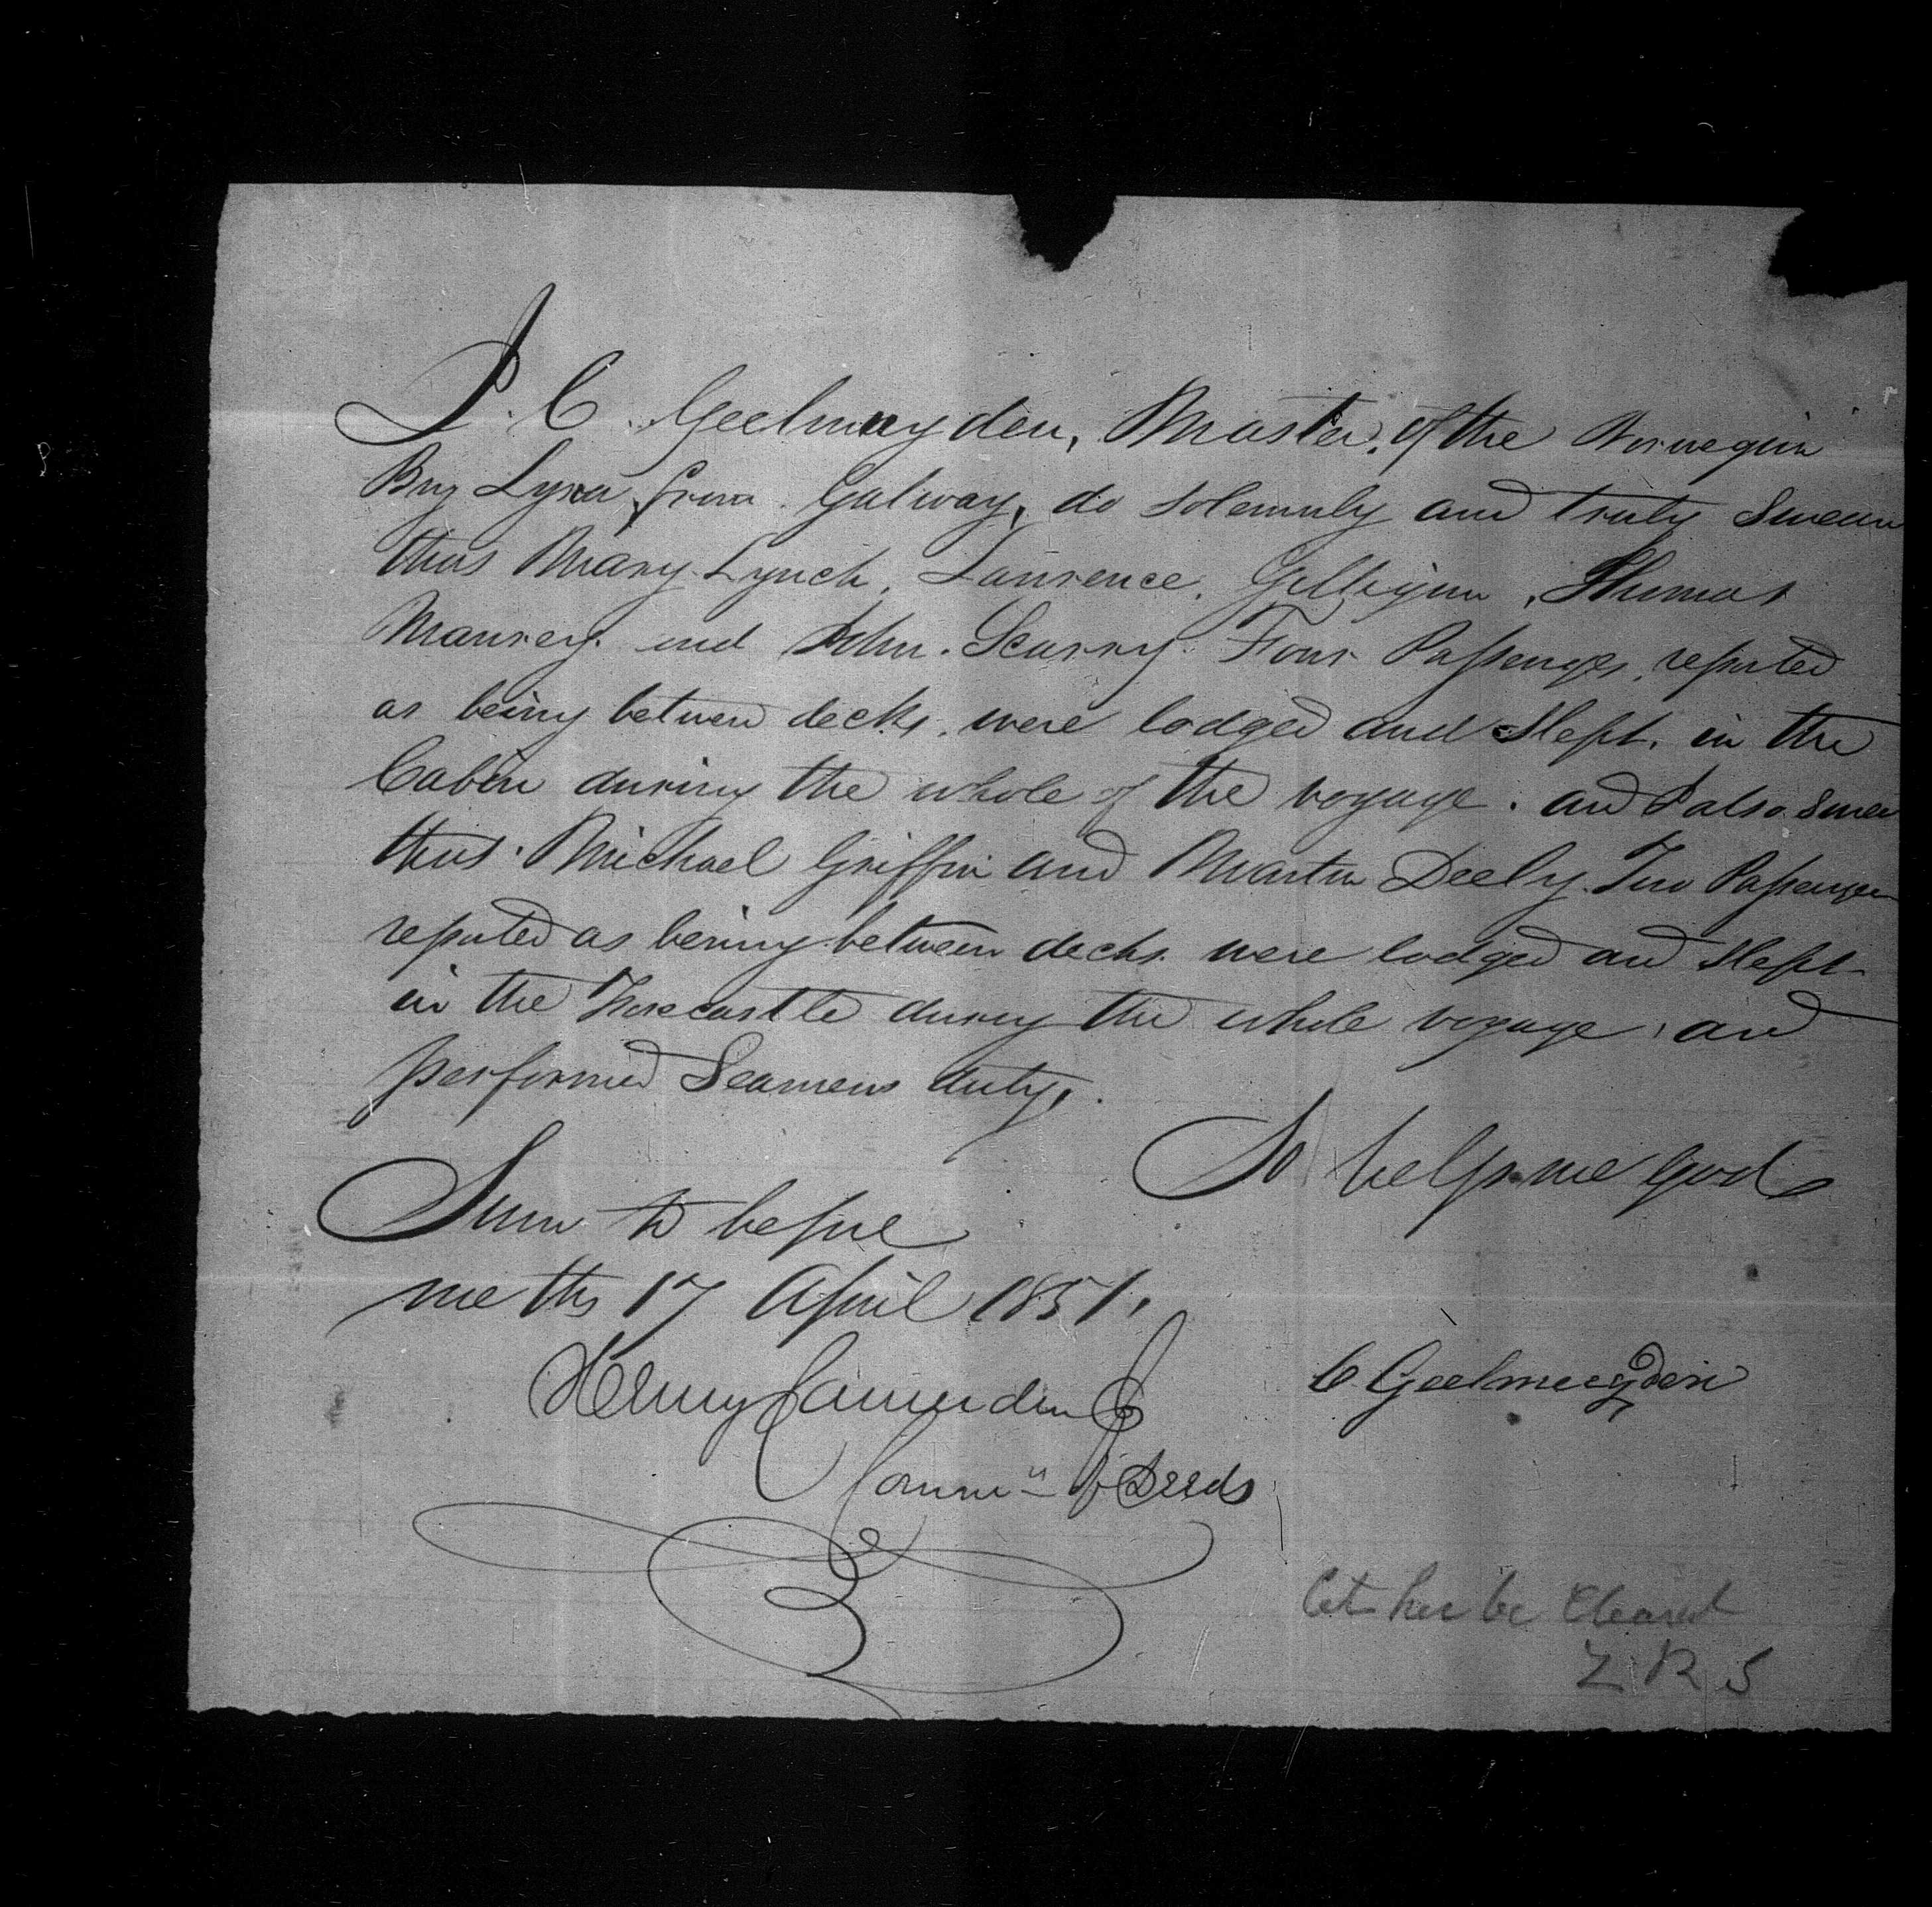 I. C. Geelmuyden, Master, of the Norwegian
Brig Lyra from Galway, do solemnly and truly Swear
that Mary Lynch, Laurence. Gilligan, Thomas
Manrey. and John. Scurry. Four Passenges, reported
as being between decks, were lodged and Slept. in the
Cabin during the whole of the voyage. and I also Swea
that Michael Griffin and Martin Deely. Two Passenger
reported as bering between decks. were lodged and Slept
in the Forecastle during the whole voyage, and
performed Seamens duty,.
So help me God
Sworn to before
me this 17 April 1851.
C Geelmuyden
Henry
Commr of Deeds
Let her be Cleared
Z R S